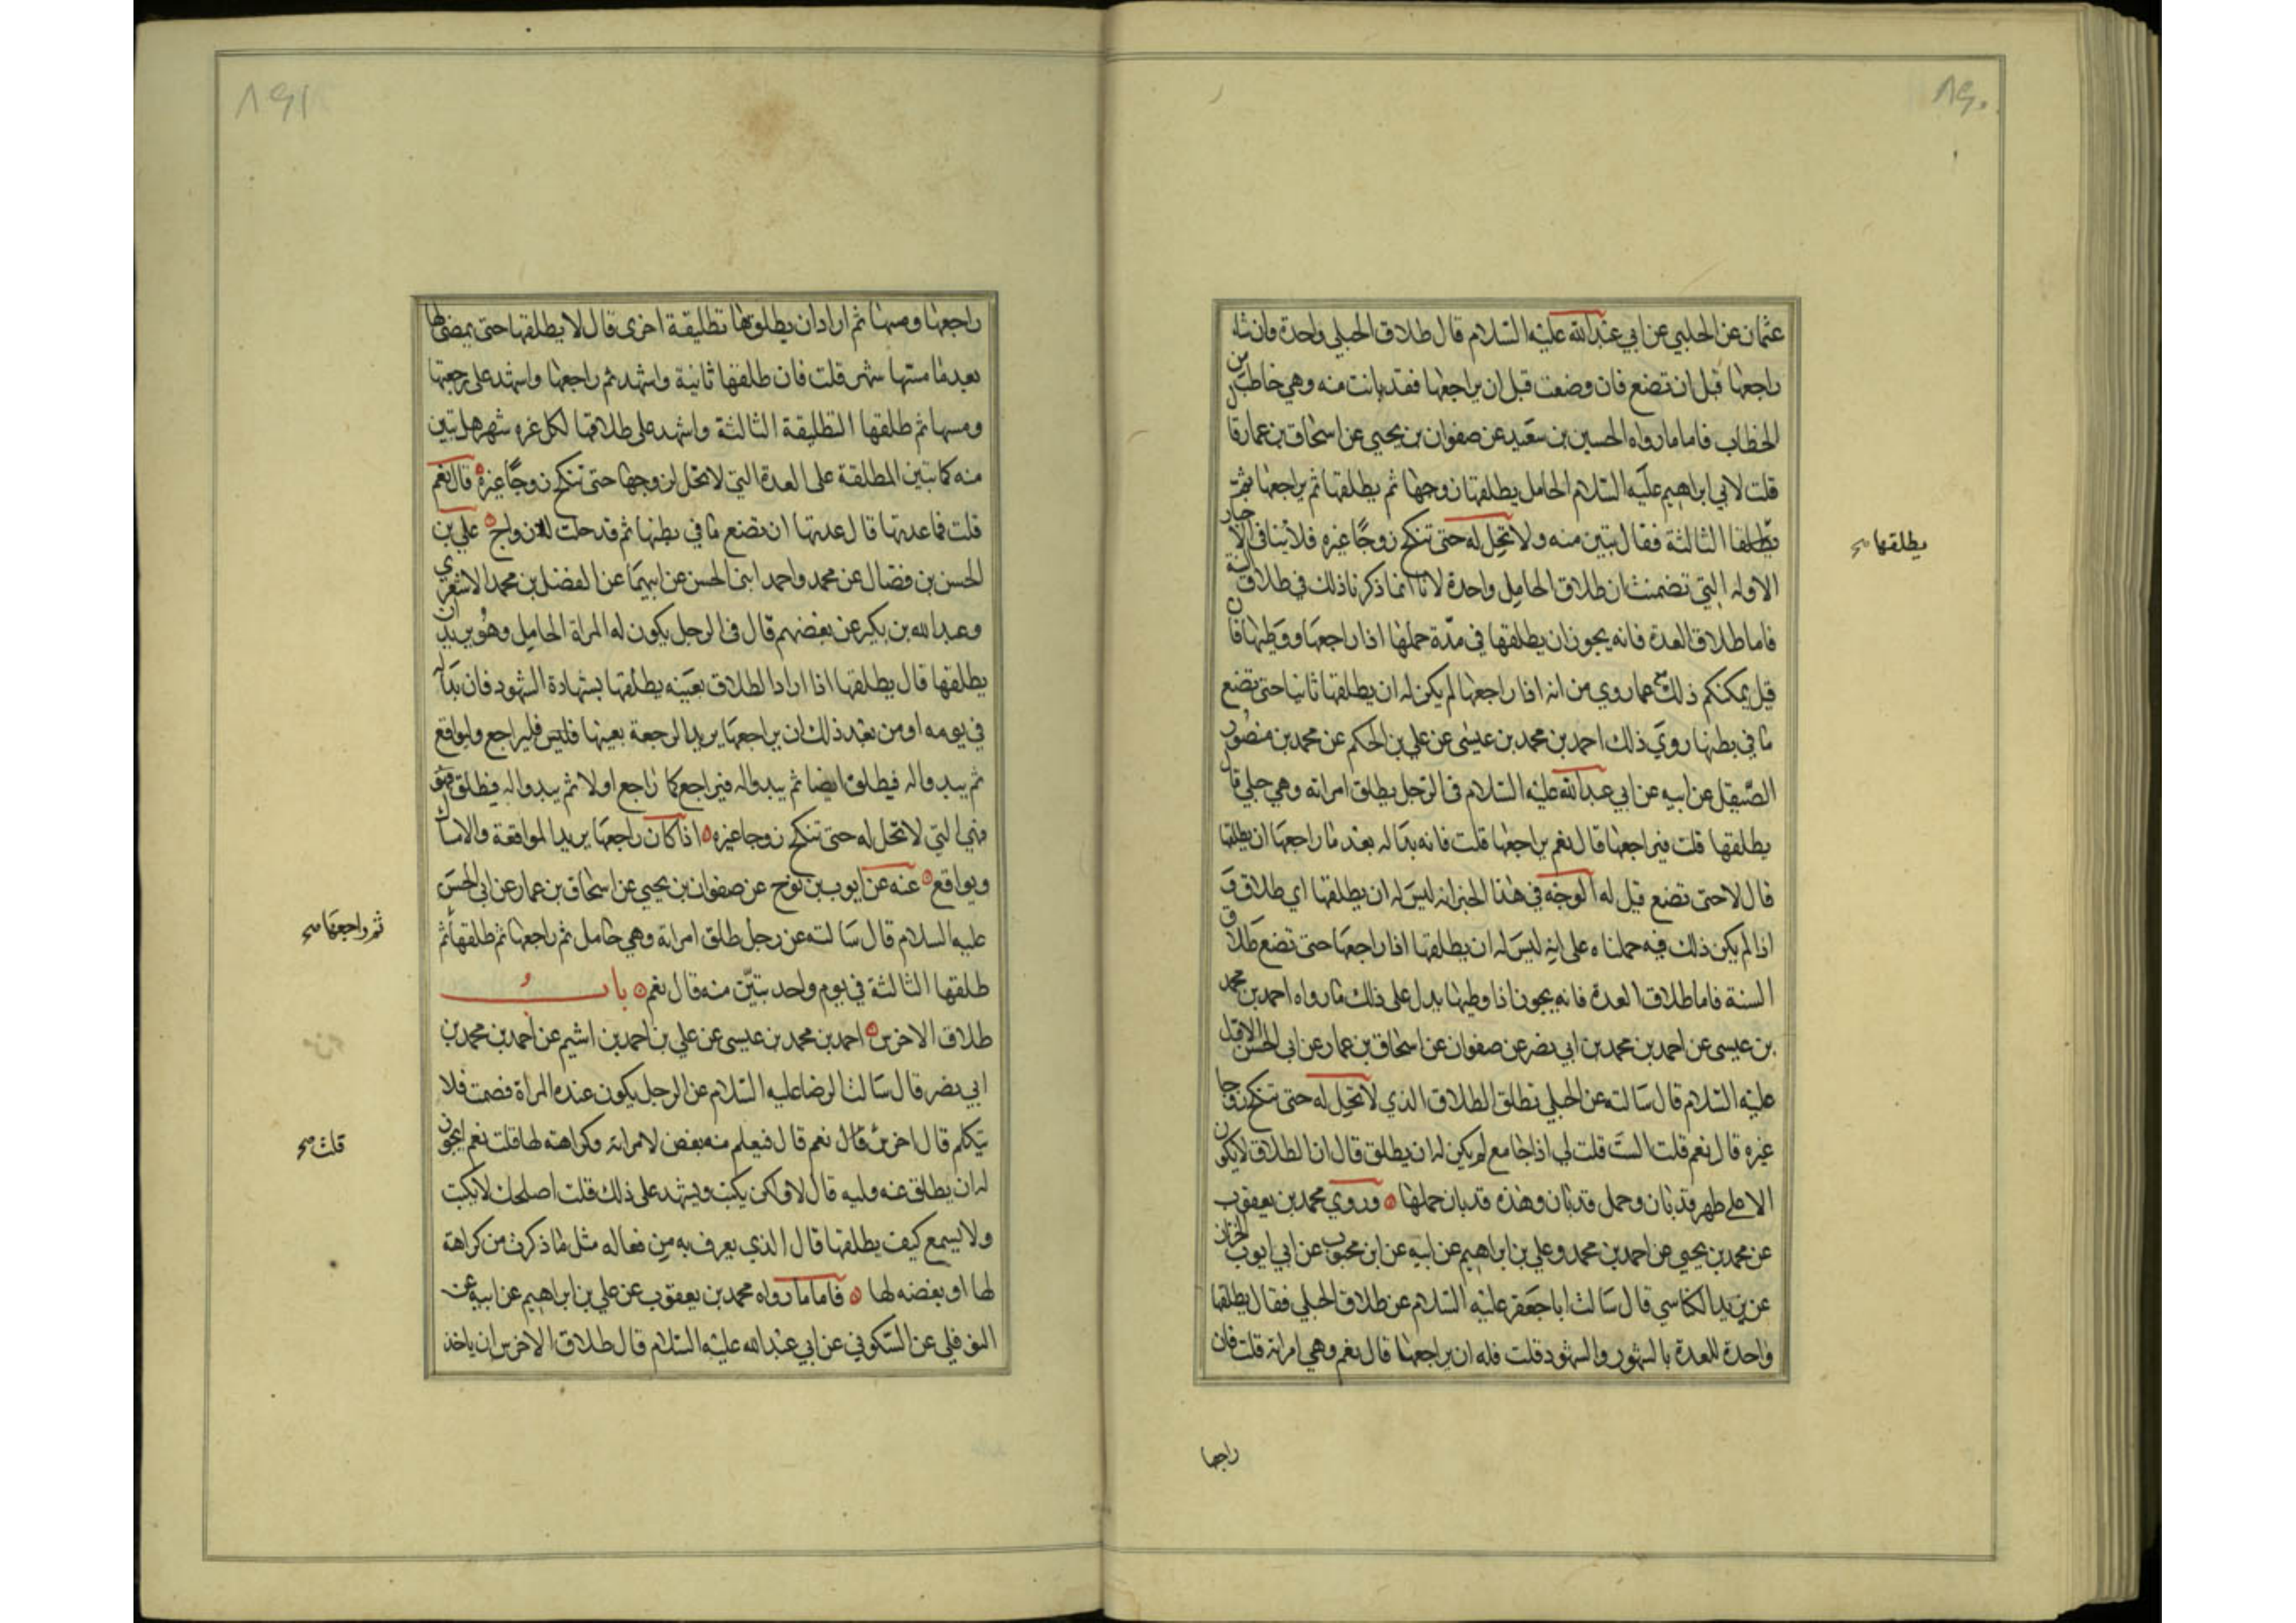 ٨٩٠
عثمان عن الحلبي عن ابي عبد الله عليه السلام قال طلاق الحبلي واحدة وان شاء
راجعها قبل ان تضع فان وضعت قبل ان يراجعها فقد بانت منه وهي خاطب من
الخطاب فاما ما رواه الحسين بن سعيد عن صفوان بن يحيي عن اسحاق بن عمار قال
قلت لابي ابراهيم عليه السلام الحامل يطلقها زوجها ثم يطلقها ثم يراجعها ثم
يطلقها الثالثة فقال تبين منه ولا تحل له حتى تنكح زوجًا غيره فلا ينافي الاخبار
يطلقها صح
الاوله التي تضمنت ان طلاق الحامل واحدة لانا انما ذكرنا ذلك في طلاق السنة
فاما طلاق العدة فانه يجوز ان يطلقها في مدّة حملها اذا راجعها ووطيها فان
قيل يمكنكم ذلك مع ما روي من انه اذا راجعها لم يكن له ان يطلقها ثانيا حتى تضع
ما في بطنها روي ذلك احمد بن محمد بن عيسى عن علي بن الحكم عن محمد بن منصور
الصّيقل عن ابيه عن ابي عبد الله عليه السلام في الرجل يطلق امراته وهي حبلي قال
يطلقها قلت فيراجعها قال نعم يراجعها قلت فانه بدا له بعد ما راجعها ان يطلقها
قال لا حتى تضع قيل له الوجه في هذا الخبر انه ليس له ان يطلقها اي طلاق و
اذا لم يكن ذلك فيه حملناه على انه ليس له ان يطلقها اذا راجعها حتى تضع طلاق
السنة فاما طلاق العدة فانه يجوز اذا وطيها يدل على ذلك ما رواه احمد بن محمد
بن عيسى عن احمد بن محمد بن ابي نصر عن صفوان عن اسحاق بن عمار عن ابي الحسن الاول
عليه السلام قال سالته عن الحبلي تطلق الطلاق الذي لا تحل له حتى تنكح زوجا
غيره قال نعم قلت الست قلت لي اذا جامع لم يكن له ان يطلق قال ان الطلاق لا يكون
الا على طهر قد بان وحمل قد بان وهذه قد بان حملها وروي محمد بن يعقوب
عن محمد بن يحيي عن احمد بن محمد وعلي بن ابراهيم عن ابيه عن ابن محبوب عن ابي ايوب الخزاز
عن يزيد الكناسي قال سالت ابا جعفر عليه السلام عن طلاق الحبلي فقال يطلقها
واحدة للعدة بالشهور والشهود قلت فله ان يراجعها قال نعم وهي امراته قلت فان
راجعها
٨٩١
راجعها ومسها ثم اراد ان يطلقها تطليقة اخرى قال لا يطلقها حتى يمضي لها
بعد ما مسها شهر قلت فان طلقها ثانية واشهد ثم راجعها واشهد على رجعتها
ومسها ثم طلقها التطليقة الثالثة واشهد على طلاقها لكل غره شهر هل تبين
منه كما تبين المطلقة على العدة التي لا تحل لزوجها حتى تنكح زوجًا غيره قال نعم
قلت فما عدتها قال عدتها ان تضع ما في بطنها ثم قد حلت للازواج علي بن
الحسن بن فضال عن محمد واحمد ابني الحسن عن ابيهما عن الفضل بن محمد الاشعري
وعبد الله بن بكير عن بعضهم قال في الرجل يكون له المراة الحامل وهو يريد ان
يطلقها قال يطلقها اذا اراد الطلاق بعينه يطلقها بشهادة الشهود فان بدا له
في يومه او من بعد ذلك ان يراجعها يريد الرجعة بعينها فليراجع وليواقع
ثم يبدو له فيطلق ايضا ثم يبدو له فيراجع كما راجع اولا ثم يبدو له فيطلق
فهي التي لا تحل له حتى تنكح زوجا غيره اذا كان راجعها يريد المواقعة والامساك
ويواقع عنه عن ايوب بن نوح عن صفوان بن يحيي عن اسحاق بن عمار عن ابي الحسن
عليه السلام قال سالته عن رجل طلق امراته وهي حامل ثم راجعها ثم طلقها ثم
ثم راجعها صح
طلقها الثالثة في يوم واحد تبين منه قال نعم باب
طلاق الاخرس احمد بن محمد بن عيسى عن علي بن احمد بن اشيم عن احمد بن محمد بن
ابي نصر قال سالت الرضا عليه السلام عن الرجل يكون عنده المراة فصمت فلا
يتكلم قال اخرس قال نعم قال فيعلم منه بغض لامراته وكراهته لها قلت نعم ايجوز
قلت صح
له ان يطلق عنه وليه قال لا ولكن يكتب ويشهد على ذلك قلت اصلحك لا يكتب
ولا يسمع كيف يطلقها قال الذي يعرف به من فعاله مثل ما ذكرت من كراهته
لها او بغضه لها فاما ما رواه محمد بن يعقوب عن علي بن ابراهيم عن ابيه عن
النوفلي عن السكوني عن ابي عبد الله عليه السلام قال طلاق الاخرس ان ياخذ